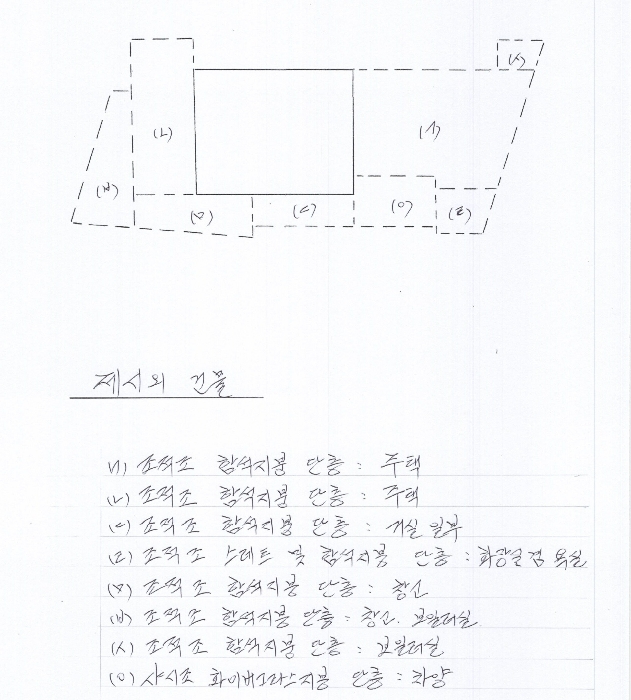 (ㅅ)
(ㄴ)
(ㄱ)
(ㅂ)
(ㅁ)
(ㄷ)
(ㅇ)
(ㄹ)
제시외 건물
ㄱ) 조적조 함석지붕 단층 : 주택
(ㄴ) 조적조 함석지붕 단층 : 주택
(ㄷ) 조적조 함석지붕 단층 : 거실 일부
(ㄹ) 조적조 스레트 및 함석지붕 단층 : 화장실 겸 욕실
(ㅁ) 조적조 함석지붕 단층 : 창고
(ㅂ) 조적조 함석지붕 단층 : 창고. 보일러실
(ㅅ) 조적조 함석지붕 단층 : 보일러실
(ㅇ) 샤시조 화이버그라스지붕 단층 : 차양